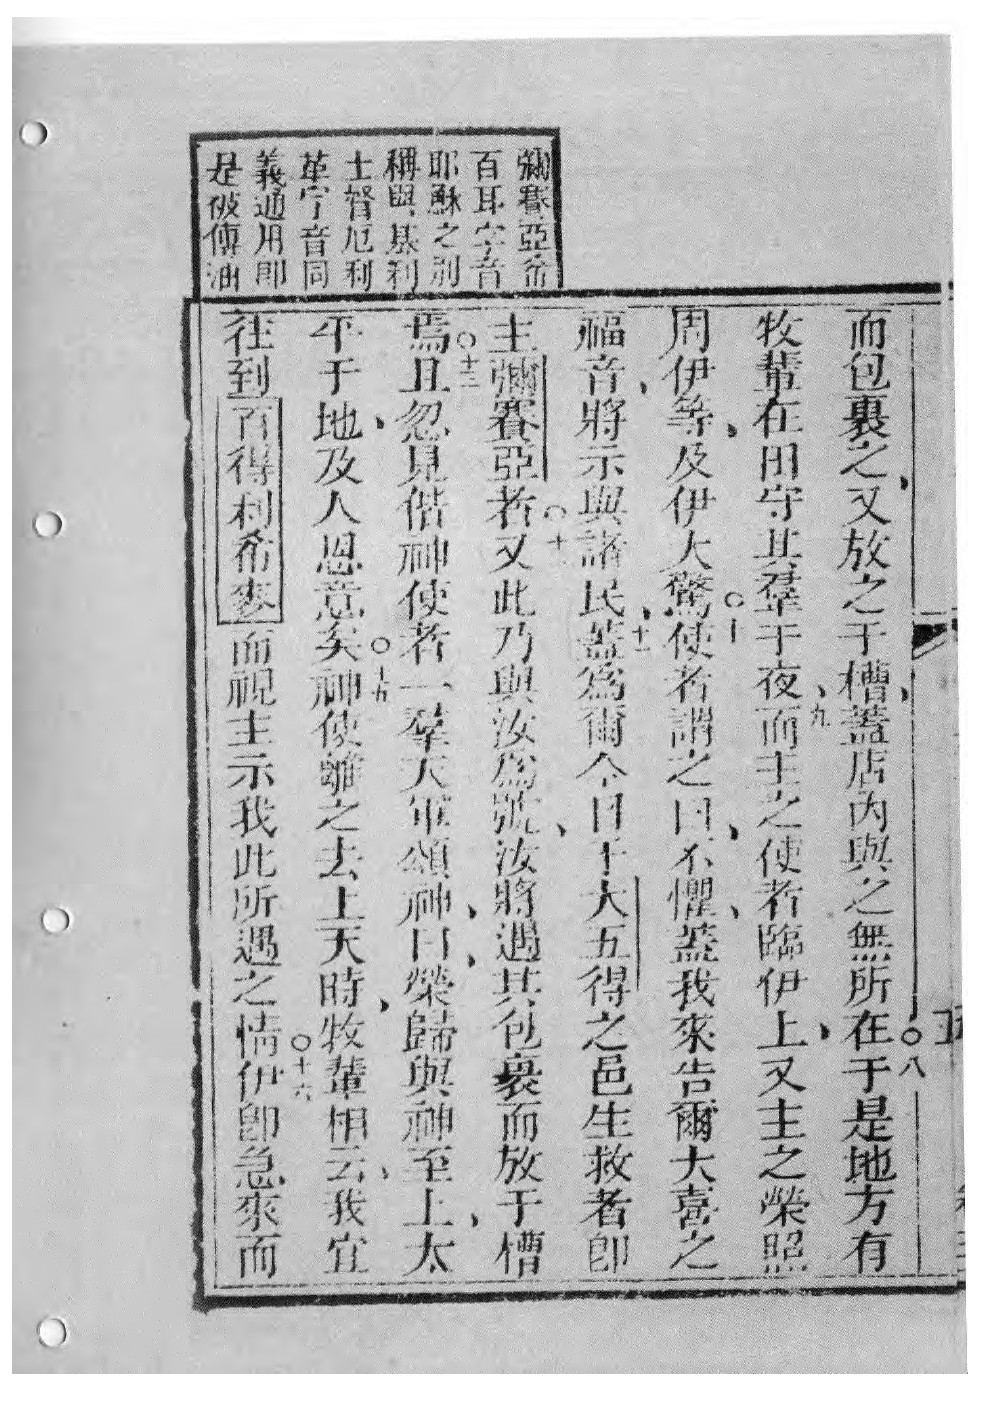 彌賽亞希
百耳字音
耶穌之別
稱與基利
士督厄利
革字音同
義通用即
是被傅油
而包裹之、又放之于槽、蓋店內與之無所在○八于是地方有
牧輩在田守其羣于夜、九而主之使者臨伊上、又主之榮照
周伊等、及伊大驚○十使者謂之曰、不懼、蓋我來告爾大喜之
福音、將示與諸民、十一蓋爲爾今日于大五得之邑生救者即
主彌賽亞者○十二又此乃與汝爲號、汝將遇其包裹而放于槽
焉○十三且忽見偕神使者一羣天軍頌神、曰、榮歸與神至上、太
平于地、及人恩意矣○十五神使離之去上天時、牧輩相云、我宜
往到百得利希麥而視主示我此所遇之情○十六伊即急來而